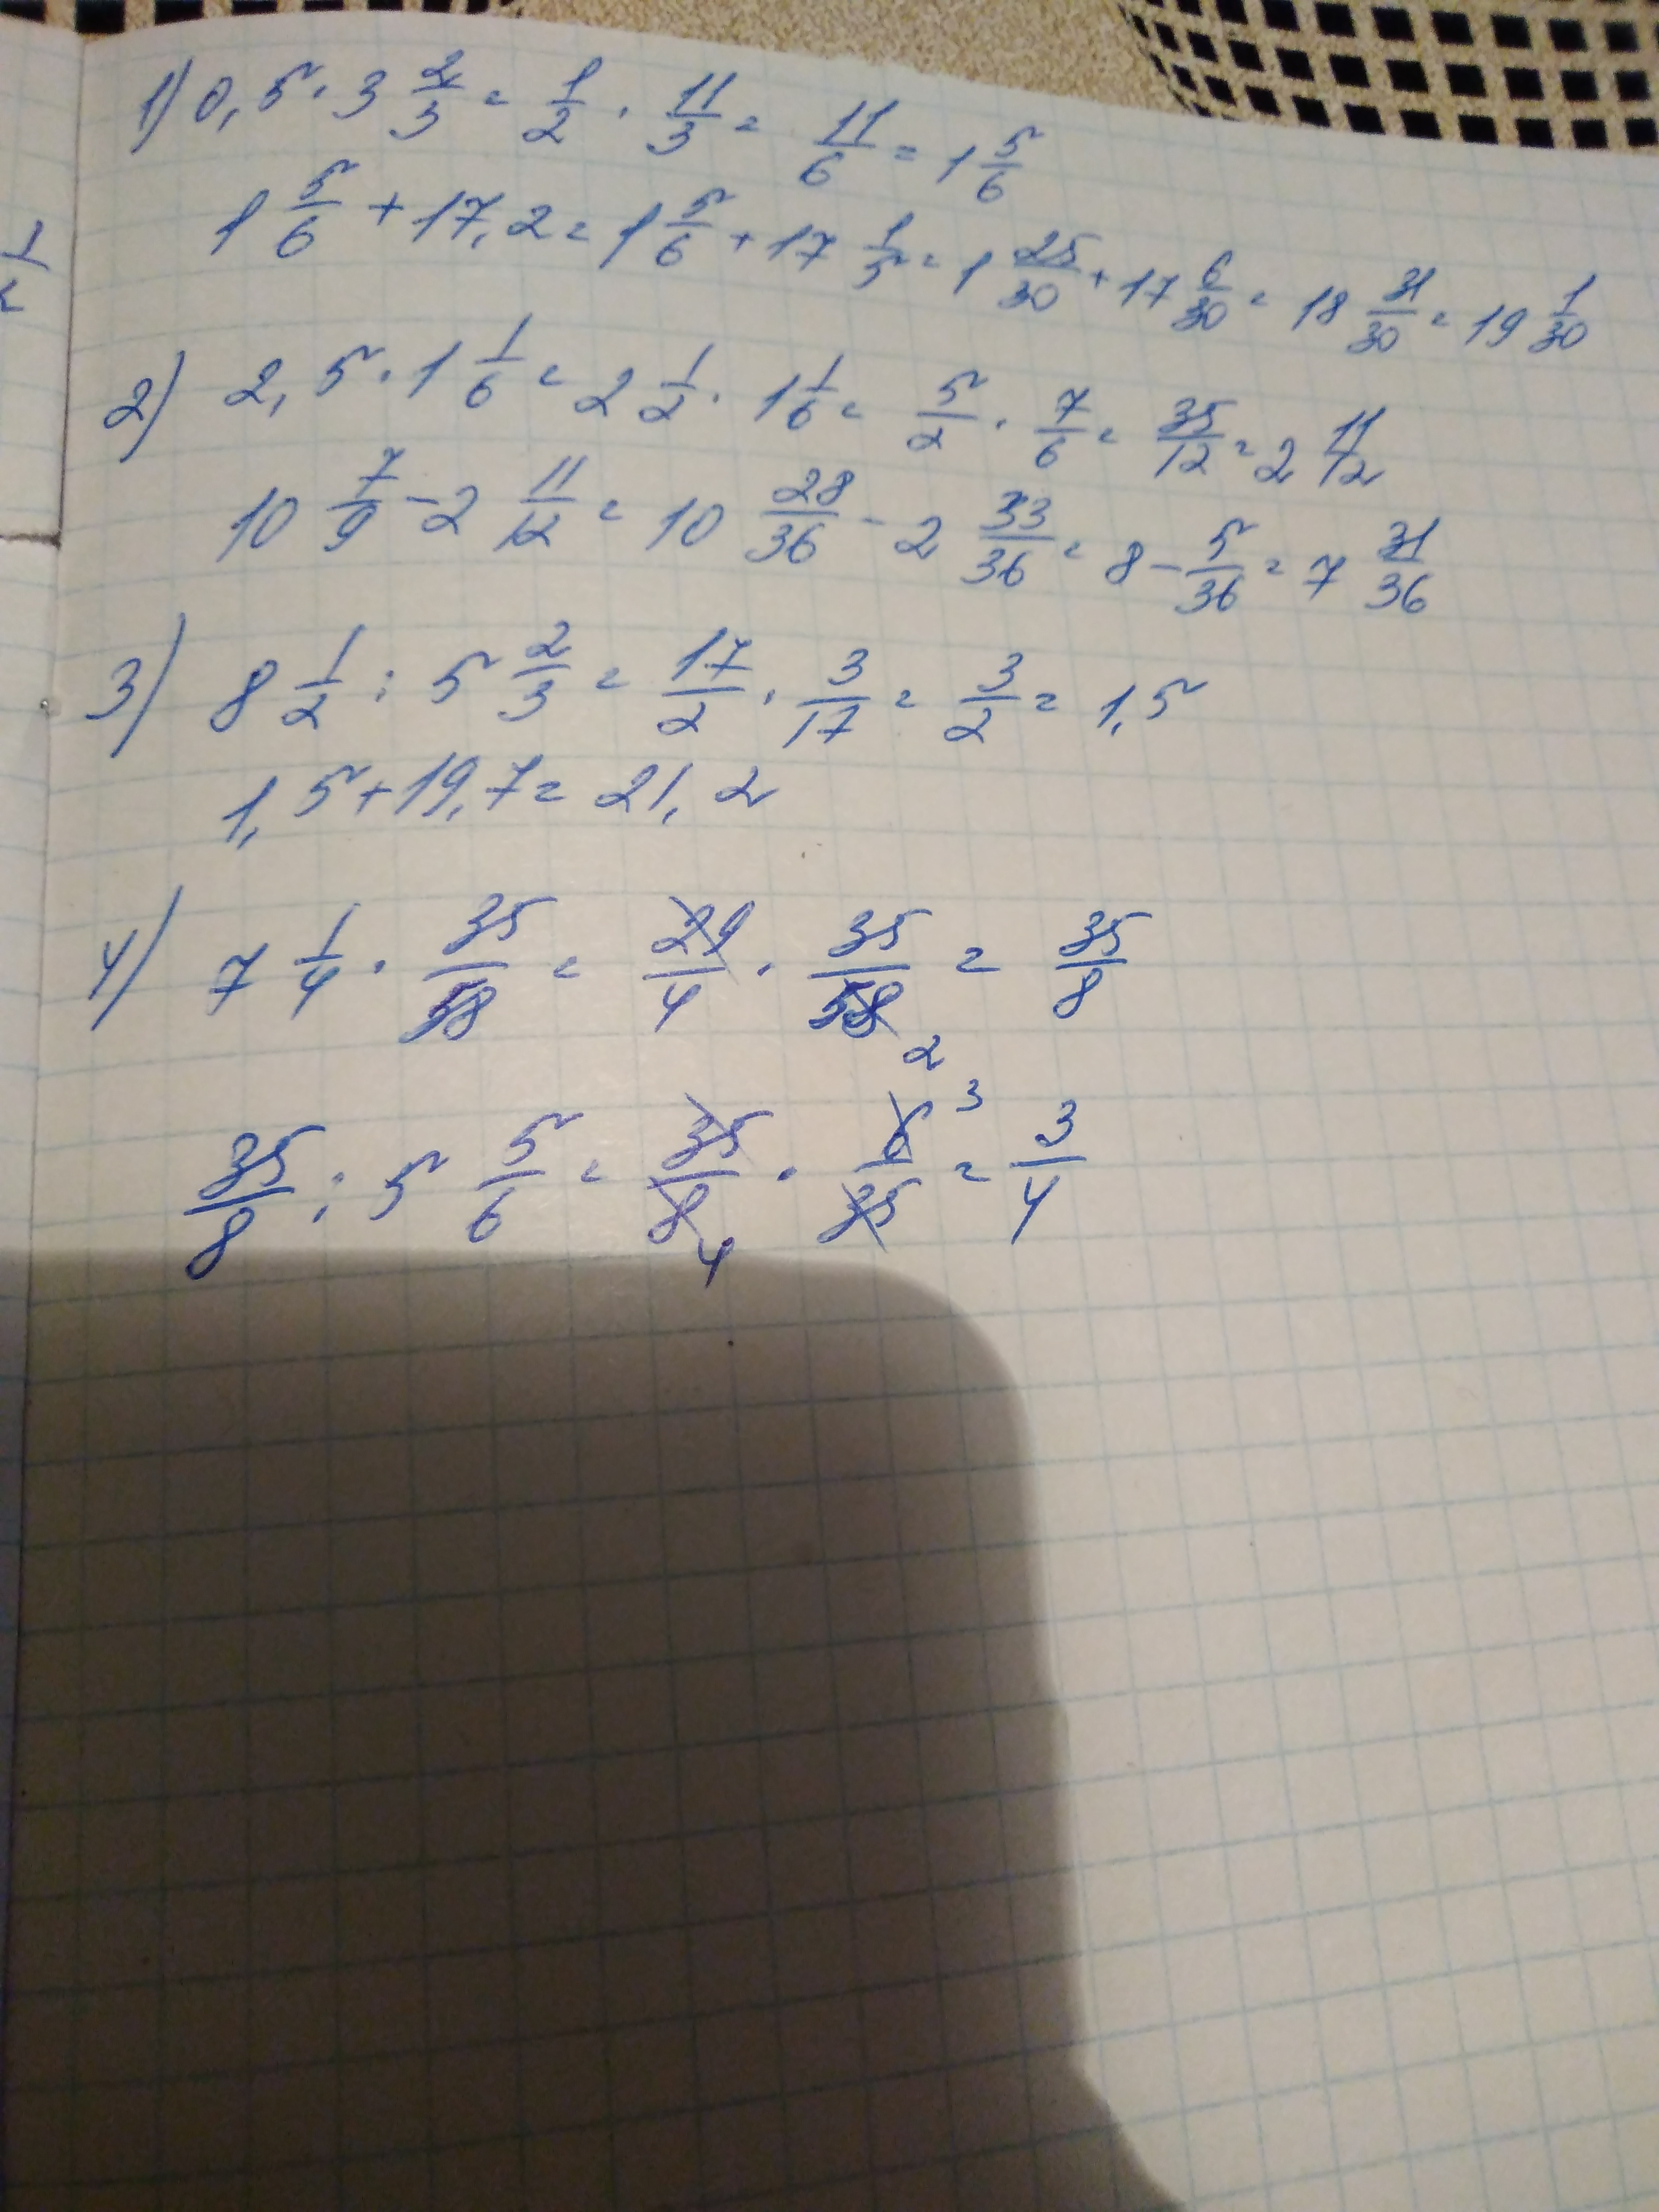 1) 0,5 · 3 2/3 = 1/2 · 11/3 = 11/6 = 1 5/6
1 5/6 + 17,2 = 1 5/6 + 17 1/5 = 1 25/30 + 17 6/30 = 18 31/30 = 19 1/30
2) 2,5 · 1 1/6 = 2 1/2 · 1 1/6 = 5/2 · 7/6 = 35/12 = 2 11/12
10 7/9 - 2 11/12 = 10 28/36 - 2 33/36 = 8 - 5/36 = 7 31/36
3) 8 1/2 : 5 2/3 = 17/2 · 3/17 = 3/2 = 1,5
1,5 + 19,7 = 21,2
4) 7 1/4 · 35/58 = 29/4 · 35/58 2 = 35/8
35/8 : 5 5/6 = 35/8 4 · 6 3/35 = 3/4